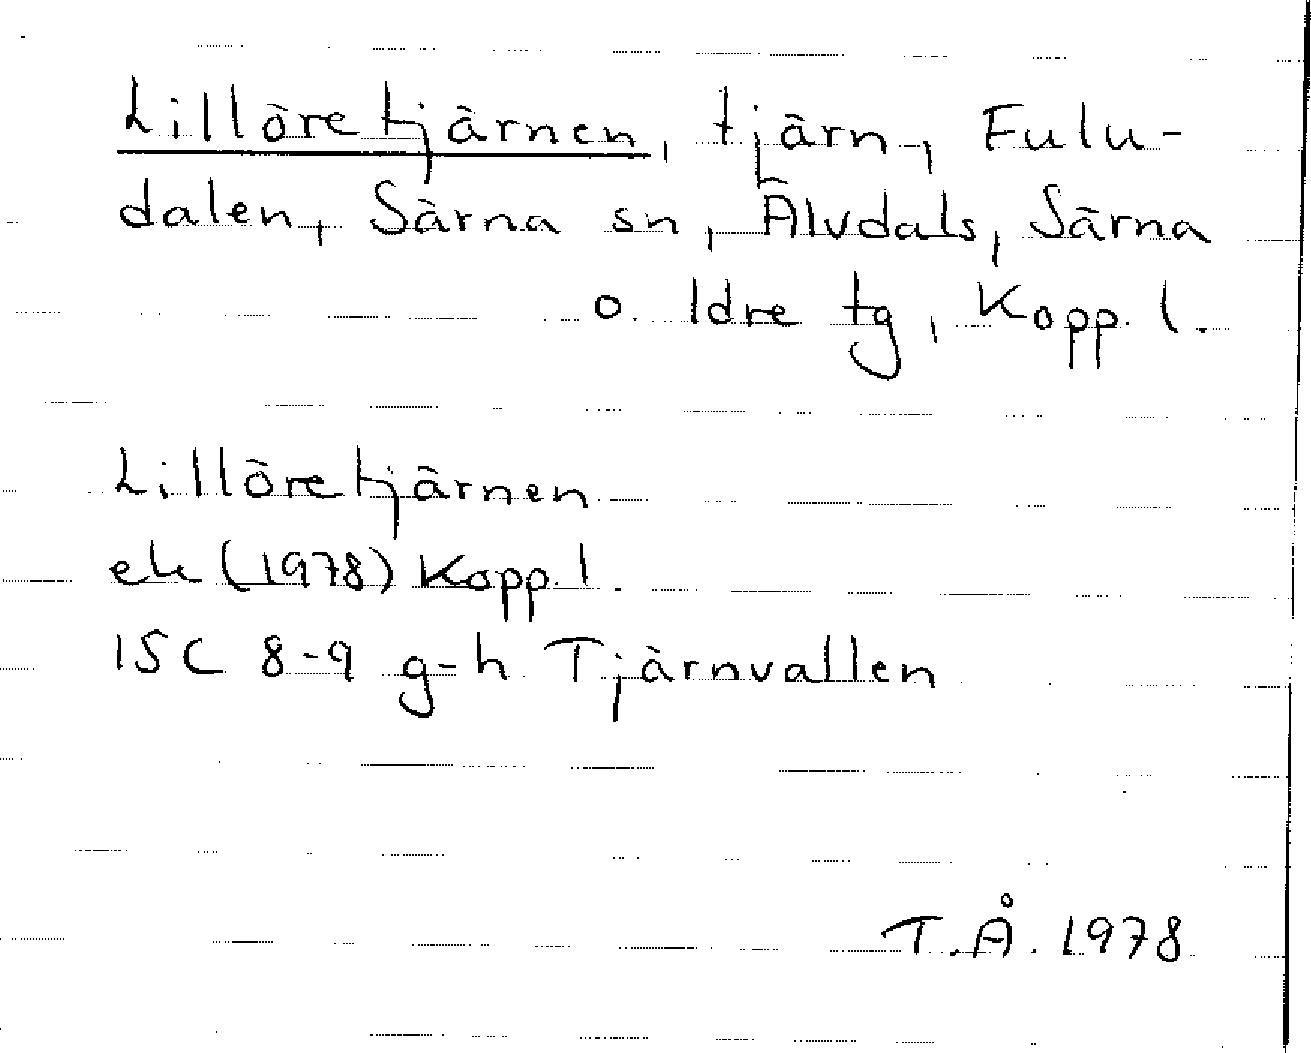 Lillöretjärnen, tjärn, Fulu-
dalen, Särna sn, Älvdals, Särna
o. Idre tg, Kopp. l.
Lillöretjärnen
ek (1978) Kopp. l.
15C 8-9 g-h Tjärnvallen
T.Å. 1978